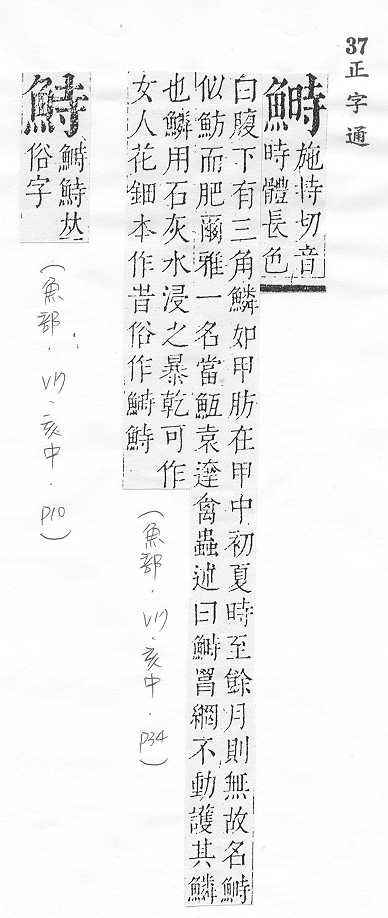 37
正字通
鰣 施持切音
時體長色
白腹下有三角鱗如甲肪在甲中初夏時至餘月則無故名鰣
似魴而肥爾雅一名當魱袁達禽蟲述曰鰣罥網不動護其鱗
也鱗用石灰水浸之暴乾可作
女人花鈿本作昔俗作鰣鮬
(魚部．VI7．亥中．P34)
俗字
(魚部．VI7．亥中．P10)